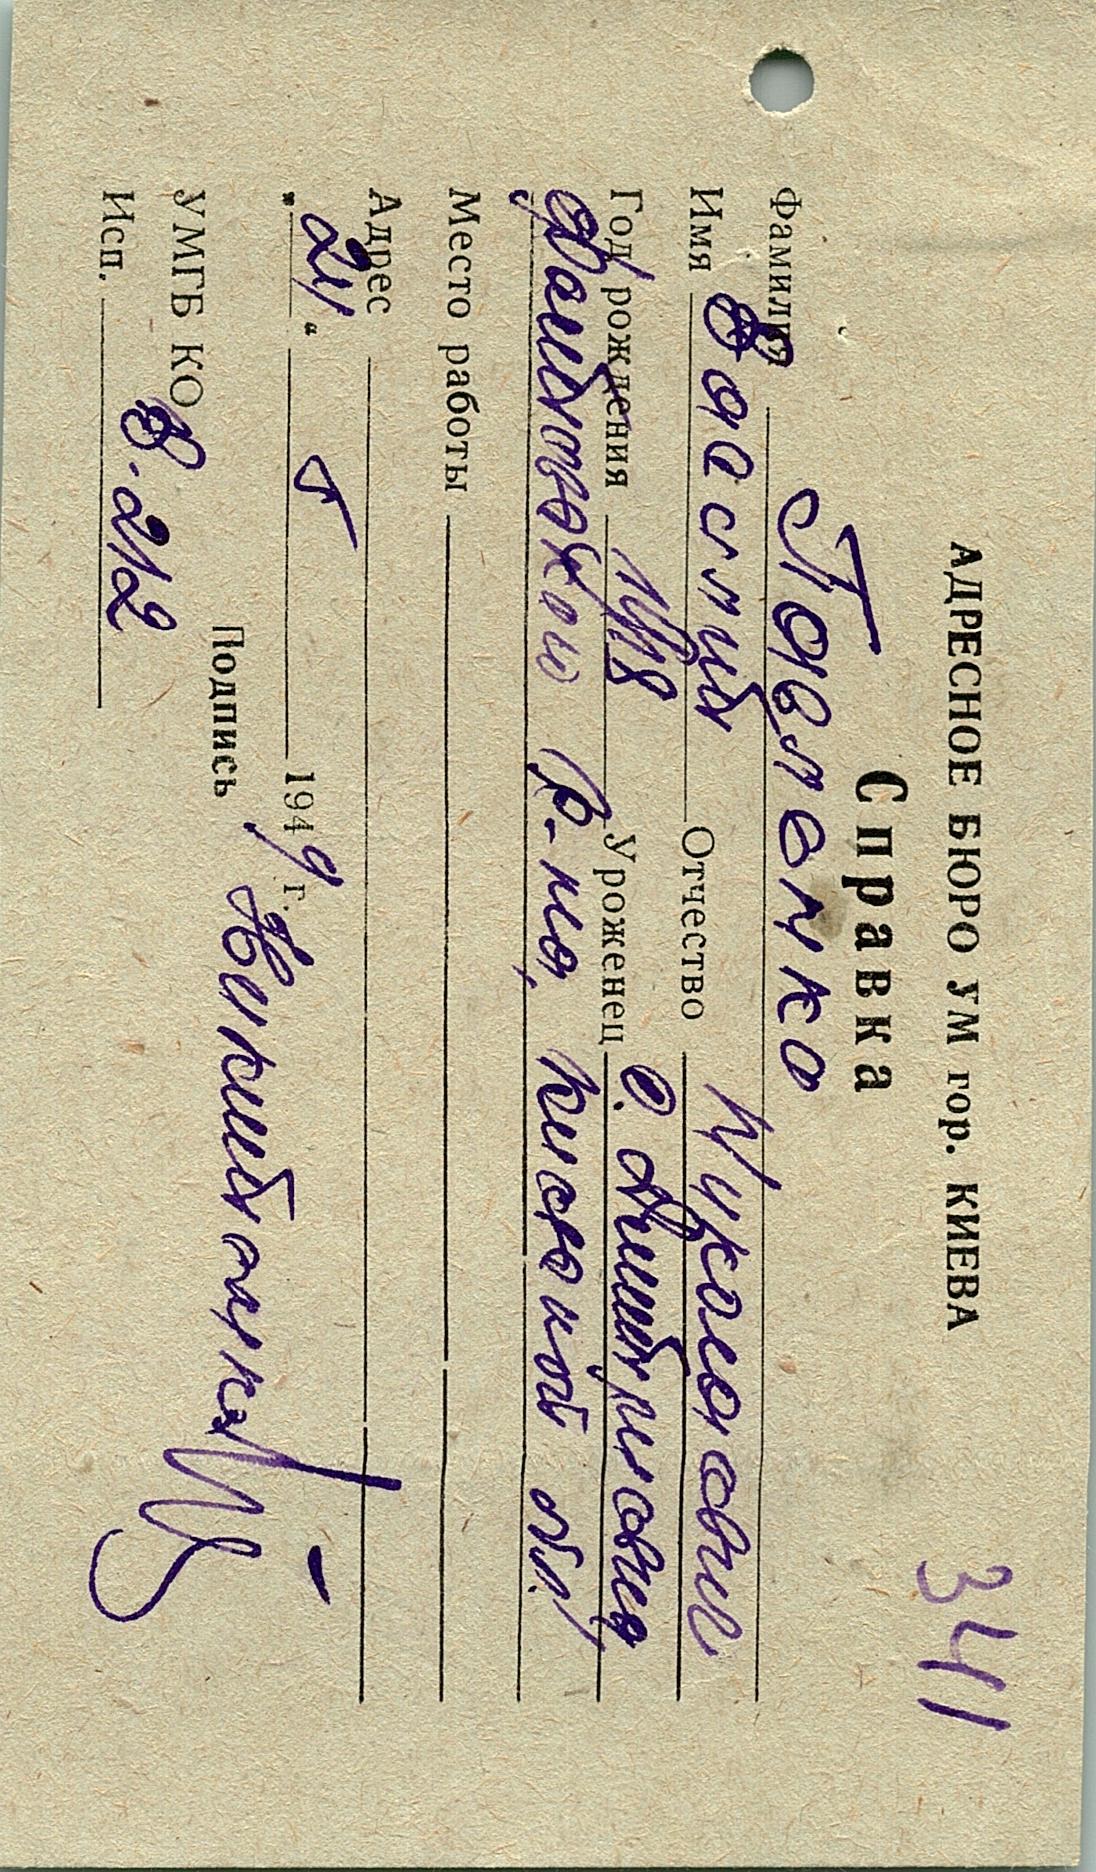 341
АДРЕСНОЕ БЮРО УМ гор. КИЕВА
Справка
Фамилия Павленко
Имя Василий Отчество Николаевич
Год рождения 1918 Уроженец с. Дмитриевка,
р-на, Киевской обл.
Место работы
Адрес
„24“ V 1949 г.
Подпись
УМГБ КО
Исп. 8.212